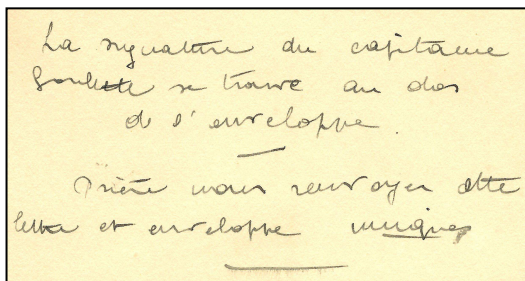 La signature du capitaine
Goulette se trouve au dos
de l'enveloppe.
Prière nous renvoyer cette
lettre et enveloppe uniques